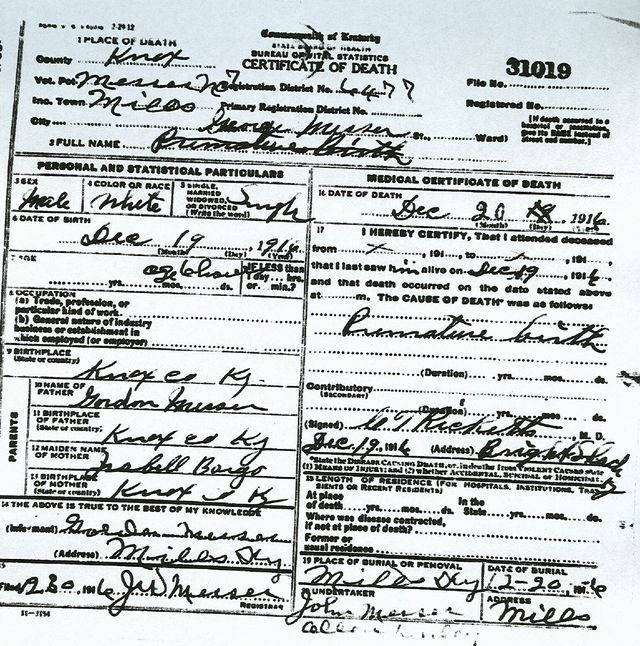 Commonwealth of Kentucky
STATE BOARD OF HEALTH
BUREAU OF VITAL STATISTICS
CERTIFICATE OF DEATH
1 PLACE OF DEATH
County Knox
Vot. Pct. Messer No 7 Registration District No. 6477
File No. 31019
Inc. Town Mills Primary Registration District No.
Registered No.
City St., Ward)
[If death occurred in a hospital or institution, give its NAME instead of street and number.]
2 FULL NAME Messer
Premature birth
PERSONAL AND STATISTICAL PARTICULARS
3 SEX Male
4 COLOR OR RACE White
5 SINGLE, MARRIED, WIDOWED, OR DIVORCED (Write the word) Single
6 DATE OF BIRTH
Dec 19, 1916
(Month) (Day) (Year)
7 AGE
yrs. mos. ds.
IF LESS than day hrs. or min.?
8 OCCUPATION
(a) Trade, profession, or particular kind of work.
(b) General nature of industry business or establishment in which employed (or employer)
9 BIRTHPLACE
(State or country) Knox co Ky.
PARENTS
10 NAME OF FATHER Gordon Messer
11 BIRTHPLACE OF FATHER
(State or country) Knox co Ky
12 MAIDEN NAME OF MOTHER Isabell Bargo
13 BIRTHPLACE OF MOTHER
(State or country) Knox Ky
14 THE ABOVE IS TRUE TO THE BEST OF MY KNOWLEDGE
(Informant) Gordon Messer
(Address) Mills Ky
15
Filed 1916 J W Messer
REGISTRAR
MEDICAL CERTIFICATE OF DEATH
16 DATE OF DEATH
Dec 20, 1916
(Month) (Day)
17 I HEREBY CERTIFY, That I attended deceased
from x, 191, to x, 191,
that I last saw him alive on Dec 19, 1916,
and that death occurred on the date stated above
at m. The CAUSE OF DEATH* was as follows:
Premature birth
(Duration) yrs. mos. ds.
Contributory
(SECONDARY)
(Duration) yrs. mos. ds.
(Signed) M. D.
Dec 19, 1916 (Address)
*State the DISEASE CAUSING DEATH, or, in deaths from VIOLENT CAUSES state
(1) MEANS OF INJURY; and (2) whether ACCIDENTAL, SUICIDAL or HOMICIDAL.
18 LENGTH OF RESIDENCE (FOR HOSPITALS, INSTITUTIONS, TRANSIENTS OR RECENT RESIDENTS)
At place of death yrs. mos. ds. In the State yrs. mos. ds.
Where was disease contracted, if not at place of death?
Former or usual residence
19 PLACE OF BURIAL OR REMOVAL
Mills Ky
DATE OF BURIAL
12-20-16
20 UNDERTAKER
John Messer
ADDRESS
Mills